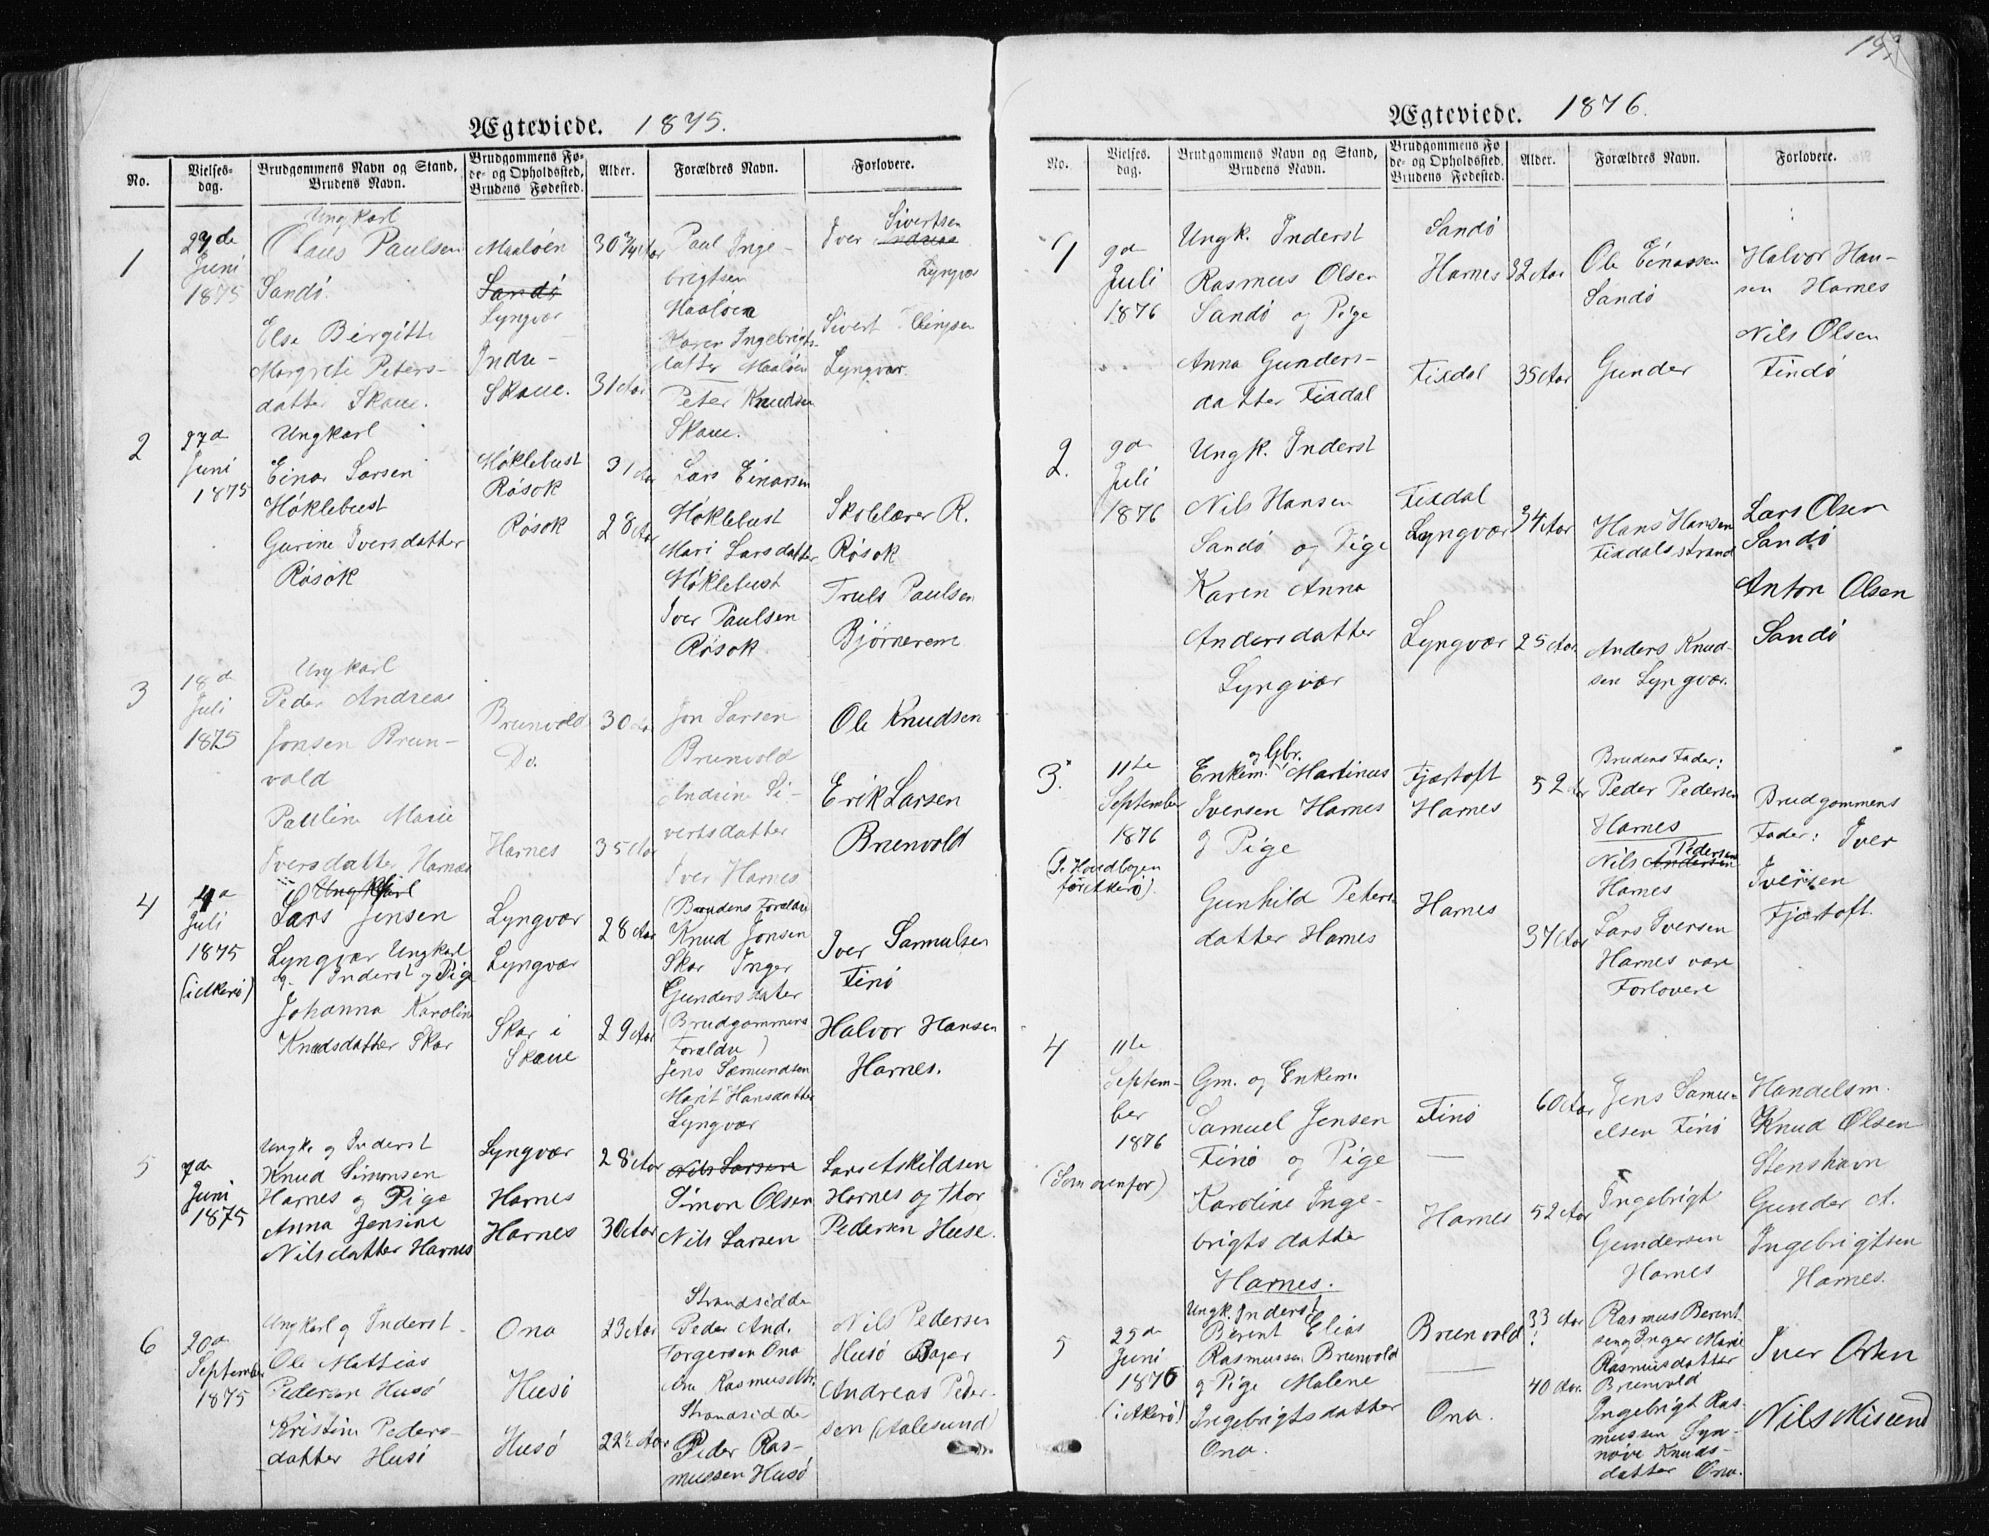 Ægteviede. 1875.
No.
Vielses-
dag.
Brudgommens Navn og Stand,
Brudens Navn.
Brudgommens Fø-
de- og Opholdssted,
Brudens Fødested.
Alder.
Forældres Navn.
Forlovere.
1
27de
Juni
1875
Ungkarl
Claus Paulsen
Sandö.
Else Birgitte
Margrete Peters-
datter Skaue.
Maalöen
Sandö
Lyngvær
Indre-
Skaue.
30 3/4 Aar
31 Aar
Paul Inge-
brigtsen
Maalöen
Karen Ingebrigts-
datter Maalöen
Peter Knudsen
Skaue.
Sivertsen
Iver
Lyngvær
Sivert
Lyngvær.
2
27d
Juni
1875
Ungkarl
Einar Larsen
Höklebust
Gurine Iversdatter
Rösok
Höklebust
Rösok
Rösok
31 Aar
28 Aar
Lars Einarsen
Höklebust
Mari Larsdatter
Höklebust
Iver Paulsen
Rösok.
Skolelærer R.
Rösok
Truls Paulsen
Björnerem
3
18d
Juli
1875
Ungkarl
Peder Andreas
Jonsen Brun-
vold
Pauline Marie
Iversdatter Harnæs
Brunvold
Do.
Harnes
30 Aar
35 Aar
Jon Larsen
Brunvold
Andrine Si-
vertsdatter
Iver Harnes
Ole Knudsen
Erik Larsen
Brunvold
4
4d
Juli
1875
(i Akerö)
Ungkarl
Lars Jensen
Lyngvær Ungkarl
og Inderst og Pige
Johanna Karoline
Knudsdatter Skar
Lyngvær
Lyngvær
Skar i
Skaue
28 Aar
29 Aar
(Brudens Forældre
Knud Jonsen
Skar Inger
Gundersdatter
(Brudgommens
Forældre)
Jens Sæmundsen
Marit Hansdatter
Lyngvær
Iver Samulsen
Finö
Halvor Hansen
Harnes.
5
7de
Juni
1875
Ungk. og Inderst
Knud Simonsen
Harnes og Pige
Anna Jensine
Nilsdatter Harnes
Lyngvær
Harnes
Harnes
28 Aar
30 Aar
Nils Larsen
Simon Olsen
Nils Larsen
Lars Askildsen
Harnes og Thor
Pedersen Huse.
6
20d
September
1875
Ungkarl og Inderst
Ole Mathias
Pedersen Husö
Kristine Peders-
datter Husö
Ona
Husö
Husö
23 Aar
22½ Aar
Strandsidder
Peder And.
Torgersen Ona
Ane Rasmusdttr.
Strandsidder
Peder Ras-
mussen Husö
Nils Pedersen
Husö Bager
Andreas Peder-
sen (Aalesund)
Ægteviede. 1876.
No.
Vielses-
dag.
Brudgommens Navn og Stand,
Brudens Navn.
Brudgommens Fø-
de- og Opholdssted.
Brudens Fødested.
Alder.
Forældres Navn.
Forlovere.
1
9d
Juli
1876
Ungk. Inderst
Rasmus Olsen
Sandö og Pige
Anna Gunders-
datter Fixdal
Sandö
Harnes
Fixdal
32 Aar
35 Aar
Ole Einarsen
Sandö
Gunder
Halvor Han-
sen Harnes
Nils Olsen
Findö
2.
9d
Juli
1876
Ungk. Inderst
Nils Hansen
Sandö og Pige
Karen Anna
Andersdatter
Lyngvær
Fixdal
Lyngvær
Lyngvær
34 Aar
25 Aar
Hans Hansen
Fixdalsstrand
Anders Knud-
sen Lyngvær.
Lars Olsen
Sandö
Anton Olsen
Sandö
3.
11te
September
1876
(I Hovedbogen
for Akerö).
og Gbr.
Enkem. Martinus
Iversen Harnes
og Pige
Gunhild Peters-
datter Harnes
Fjærtoft
Harnes
Harnes
52 Aar
37 Aar
Brudens Fader:
Peder Pedersen
Harnes
Pedersen
Nils Andersen
Harnes
Lars Iversen
Harnes vare
Forlovere
Brudgommens
Fader: Iver
Iversen
Fjærtoft.
4
11te
Septem-
ber
1876
(Som ovenfor)
Gm. og Enkem.
Samuel Jensen
Finö og Pige
Karoline Inge-
brigtsdatter
Harnes.
Finö
Harnes
60 Aar
52 Aar
Jens Samu-
elsen Finö
Ingebrigt
Gundersen
Harnes
Handelsm.
Knud Olsen
Stenshavn
Gunder A.
Ingebrigtsen
Harnes.
5
25d
Juni
1876
(i Akerö)
Ungk. Inderst
Berent Elias
Rasmussen Brunvold
og Pige Malene
Ingebrigtsdatter
Ona.
Brunvold
Ona.
33 Aar
40 Aar.
Rasmus Berent-
sen og Inger Marie
Rasmusdatter
Brunvold
Ingebrigt Ras-
mussen Syn-
növe Knuds-
datter Ona.
Iver Orten
Nils Misund